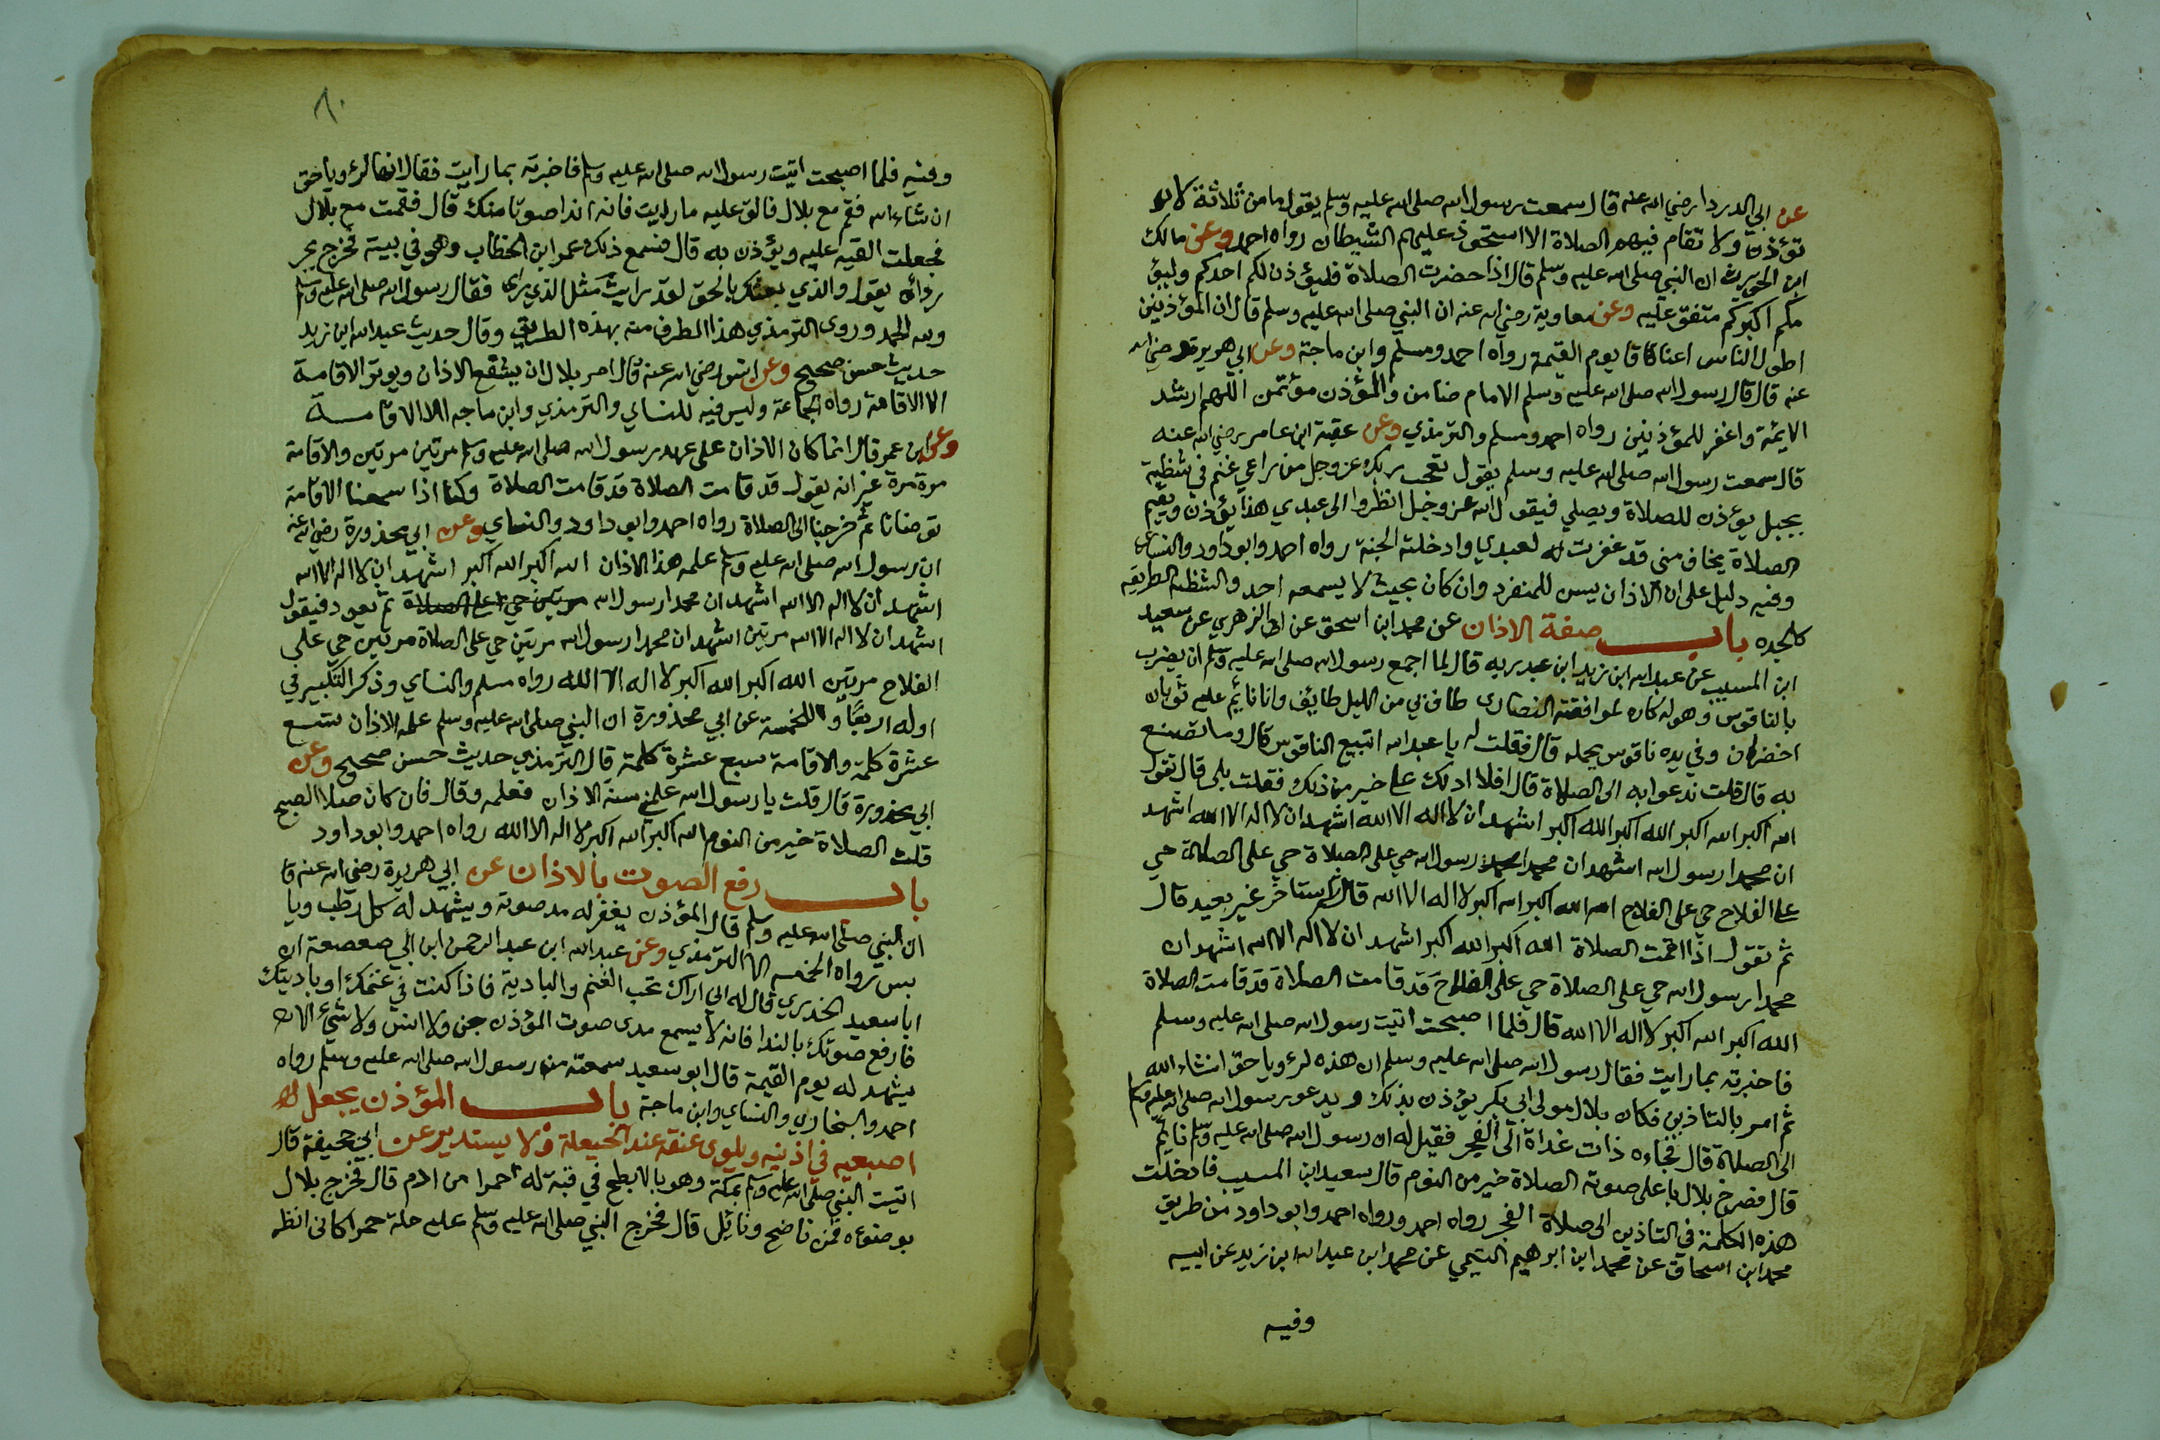 عن ابي الدرداء رضي الله عنه قال سمعت رسول الله صلى الله عليه وسلم يقول ما من ثلاثة لا
تؤذن ولا تقام فيهم الصلاة الا استحوذ عليهم الشيطان رواه احمد وعن مالك
ابن الحويرث ان النبي صلى الله عليه وسلم قال اذا حضرت الصلاة فليؤذن لكم احدكم وليؤ
مكم اكبركم متفق عليه وعن معاوية رضي الله عنه ان النبي صلى الله عليه وسلم قال ان المؤذنين
اطول الناس اعناقا يوم القيمة رواه احمد ومسلم وابن ماجة وعن ابي هريرة رضي الله
عنه قال قال رسول الله صلى الله عليه وسلم الامام ضامن والمؤذن مؤتمن اللهم ارشد
الائمة واغفر للمؤذنين رواه احمد ومسلم والترمذي وعن عقبة ابن عامر رضي الله عنه
قال سمعت رسول الله صلى الله عليه وسلم يقول تعجب ربك عز وجل من راعي غنم في شظية
بجبل يؤذن للصلاة ويصلي فيقول الله عز وجل انظروا الى عبدي هذا يؤذن ويقيم
الصلاة يخاف مني قد غفرت له لعبدي وادخلته الجنة رواه احمد وابو داود والنساي
وفيه دليل على ان الاذان يسن للمنفرد وان كان بحيث لا يسمعه احد والشظه الطريقه
كالجده باب صفة الاذان عن محمد ابن اسحق عن الزهري عن سعيد
ابن المسيب عن عبد الله ابن زيد ابن عبد ربه قال لما اجمع رسول الله صلى الله عليه وسلم ان يضرب
بالناقوس وهو له كاره لموافقته النصارى طاف بي من الليل طايف وانا نايم عليه ثوبان
اخضران وفي يده ناقوس يحمله قال فقلت له يا عبد الله اتبيع الناقوس قال وما تصنع
به قال قلت ندعوا به الى الصلاة قال افلا ادلك على خير من ذلك فقلت بلى قال تقول
الله اكبر الله اكبر الله اكبر الله اكبر اشهد ان لا اله الا الله اشهد ان لا اله الا الله اشهد
ان محمدا رسول الله اشهد ان محمدا رسول الله حي على الصلاة حي على الصلاة حي
على الفلاح حي على الفلاح الله اكبر الله اكبر لا اله الا الله قال ثم استاخر غير بعيد قال
ثم تقول اذا اقمت الصلاة الله اكبر الله اكبر اشهد ان لا اله الا الله اشهد ان
محمدا رسول الله حي على الصلاة حي على الفلاح قد قامت الصلاة قد قامت الصلاة
الله اكبر الله اكبر لا اله الا الله قال فلما اصبحت اتيت رسول الله صلى الله عليه وسلم
فاخبرته بما رايت فقال رسول الله صلى الله عليه وسلم ان هذه لرؤيا حق انشاء الله
ثم امر بالتاذين فكان بلال مولى ابي بكر يؤذن بذلك ويدعو رسول الله صلى الله عليه وسلم
الى الصلاة قال فجاءه ذات غداة الى الفجر فقيل له ان رسول الله صلى الله عليه وسلم نايم
قال فصرخ بلال باعلى صوته الصلاة خير من النوم قال سعيد ابن المسيب فادخلت
هذه الكلمة في التاذين الى صلاة الفجر رواه احمد ورواه احمد وابو داود من طريق
محمد ابن اسحاق عن محمد ابن ابراهيم التيمي عن محمد ابن عبد الله بن زيد عن ابيه
وفيه
٦٠
وفيه فلما اصبحت اتيت رسول الله صلى الله عليه وسلم فاخبرته بما رايت فقال انها لرؤيا حق
ان شاء الله فقم مع بلال فالق عليه ما رايت فانه اندا صوتا منك قال فقمت مع بلال
فجعلت القيه عليه ويؤذن به قال فسمع ذلك عمر ابن الخطاب وهو في بيته فخرج يجر
رداءه يقول والذي بعثك بالحق لقد رايت مثل الذي يرى فقال رسول الله صلى الله عليه وسلم
ولله الحمد وروى الترمذي هذا الطرف منه بهذه الطريق وقال حديث عبد الله ابن زيد
حديث حسن صحيح وعن انس رضي الله عنه قال امر بلال ان يشفع الاذان ويوتر الاقامة
الا الاقامة رواه الجماعة وليس فيه للنساي والترمذي وابن ماجه الا الاقامة
وعن ابن عمر قال انما كان الاذان على عهد رسول الله صلى الله عليه وسلم مرتين مرتين والاقامة
مرة مرة غير انه يقول قد قامت الصلاة قد قامت الصلاة وكنا اذا سمعنا الاقامة
توضانا ثم خرجنا الى الصلاة رواه احمد وابو داود والنساي وعن ابي محذورة رضي الله عنه
ان رسول الله صلى الله عليه وسلم علمه هذا الاذان الله اكبر الله اكبر اشهد ان لا اله الا الله
اشهد ان لا اله الا الله اشهد ان محمدا رسول الله مرتين حي على الصلاة ثم يعود فيقول
اشهد ان لا اله الا الله مرتين اشهد ان محمدا رسول الله مرتين حي على الصلاة مرتين حي على
الفلاح مرتين الله اكبر الله اكبر لا اله الا الله رواه مسلم والنساي وذكر التكبير في
اوله اربعا وللخمسة عن ابي محذورة ان النبي صلى الله عليه وسلم علمه الاذان تسع
عشرة كلمة والاقامة سبع عشرة كلمة قال الترمذي حديث حسن صحيح وعن
ابي محذورة قال قلت يا رسول الله علمني سنة الاذان فعلمه وقال فان كان صلاا الصبح
قلت الصلاة خير من النوم الله اكبر الله اكبر لا اله الا الله رواه احمد وابو داود
باب رفع الصوت بالاذان عن ابي هريرة رضي الله عنه قا
ان النبي صلى الله عليه وسلم قال المؤذن يغفر له مد صوته ويشهد له كل رطب ويا
بس رواه الخمسه الا الترمذي وعن عبد الله ابن عبد الرحمن ابن ابي صعصعة ان
ابا سعيد الخدري قال له اني اراك تحب الغنم والبادية فاذا كنت في غنمك او باديتك
فارفع صوتك بالندا فانه لا يسمع مدى صوت المؤذن جن ولا انس ولا شيء الا
يشهد له يوم القيمة قال ابو سعيد سمعته من رسول الله صلى الله عليه وسلم رواه
احمد والبخاري والنساي وابن ماجة باب المؤذن يجعل
اصبعيه في اذنيه ويلوى عنقه عند الحيعلة ولا يستدير عن ابي جحيفة قال
اتيت النبي صلى الله عليه وسلم بمكة وهو بالابطح في قبة له احمرا من ادم قال فخرج بلال
بوضوءه فمن ناضح ونائل قال فخرج النبي صلى الله عليه وسلم عليه حلة حمرا كاني انظر